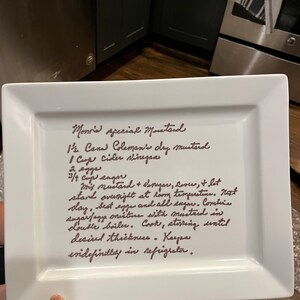 Mom's special Mustard
1½ Cans Coleman's dry mustard
1 Cup Cider Vinegar
2 eggs
3/4 cup sugar
Mix mustard & Vinegar, Cover, & let
stand overnight at room temperature. Next
day, beat eggs and add sugar. Combine
sugar/egg mixture with mustard in
double boiler. Cook, stirring until
desired thickness. Keeps
indefinitely in refrigerator.